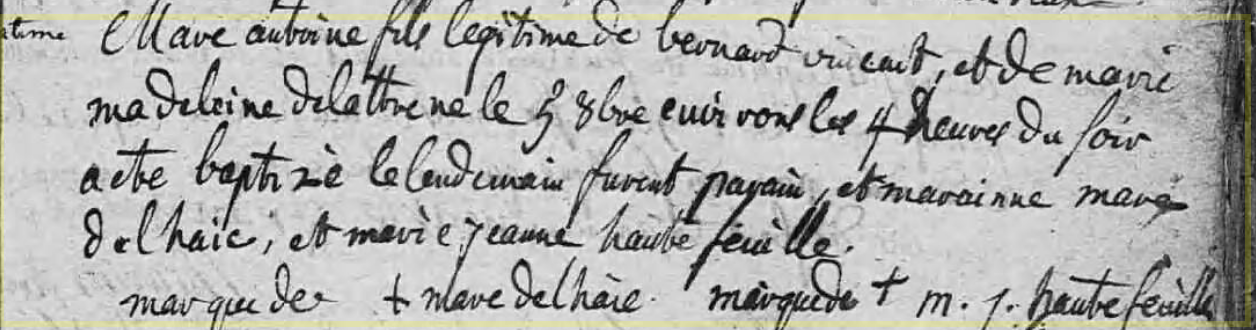 Marc antoine fils legitime de bernard vincent, et de marie
madeleine delattre ne le 5 8bre environs les 4 heures du soir
a ete baptisé le lendemain furent parain, et marainne marc
delhaie, et marie jeanne haute feuille.
marque de + marc delhaie. marque de + m. j. haute feuille